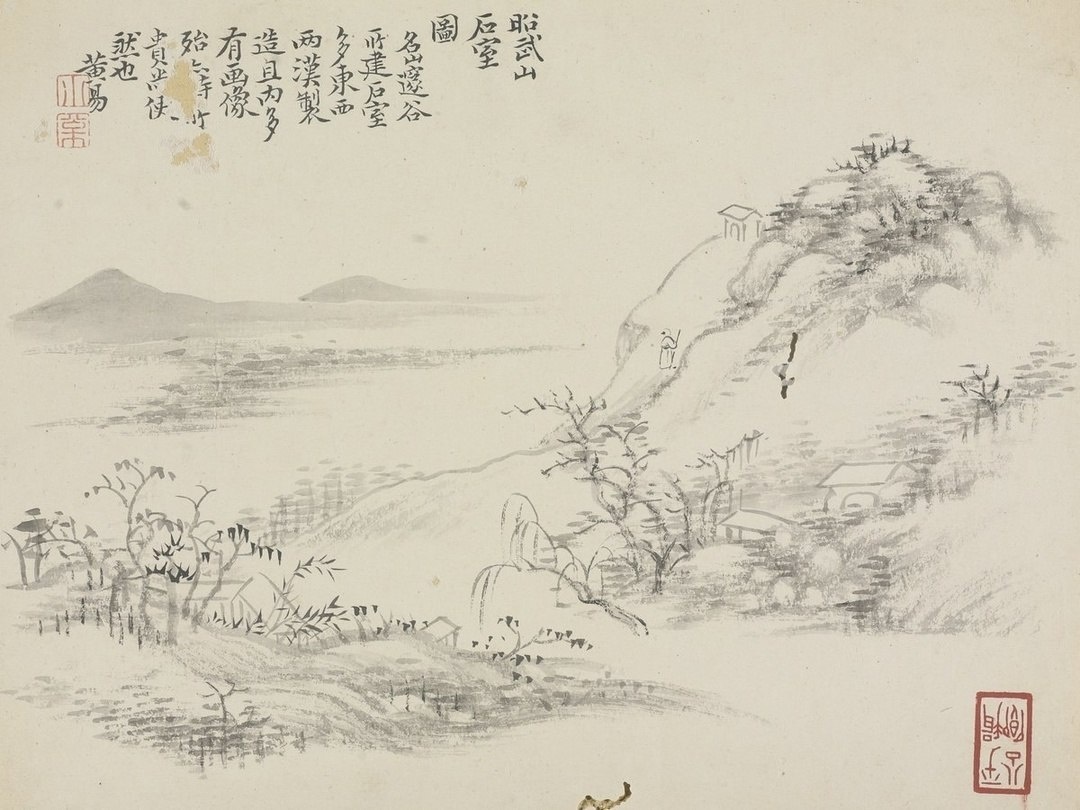 昭武山
石室
圖
名山邃谷
所建石室
多東西
两漢製
造且内多
有画像
殆
貴 使
然也
黄易